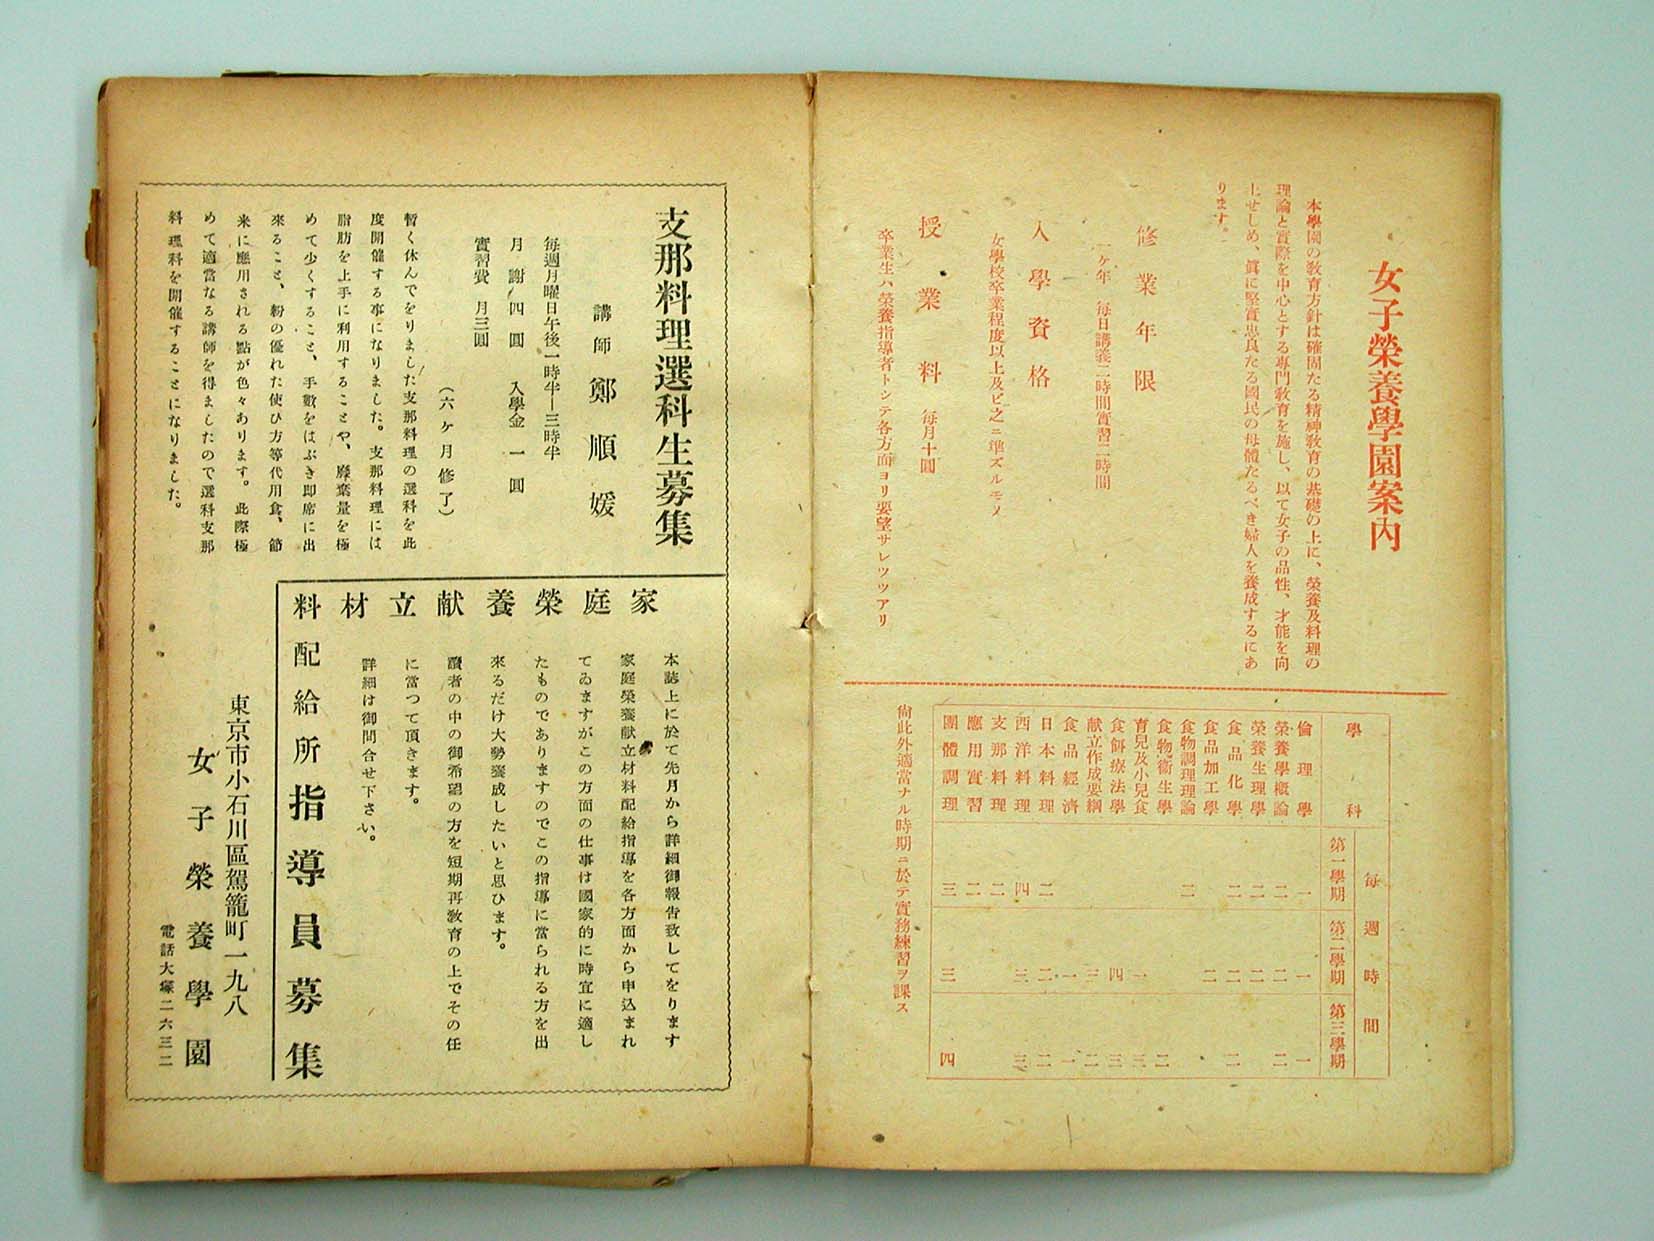 女子榮養學園案內
本學園の敎育方針は確固たる精神敎育の基礎の上に、榮養及料理の
理論と實際を中心とする專門敎育を施し、以て女子の品性、才能を向
上せしめ、眞に堅實忠良たる國民の母體たるべき婦人を養成するにあ
ります。
修業年限
一ヶ年 每日講義二時間實習二時間
入學資格
女學校卒業程度以上及ビ之ニ準ズルモノ
授業料 每月十圓
卒業生ハ榮養指導者トシテ各方面ヨリ要望サレツツアリ
學科 每週時間
第一學期 第二學期 第三學期
倫理學 一 一 一
榮養學槪論 二 二 二
榮養生理學 二 二
食品化學 二 二 二
食品加工學 二
食物調理理論 二
食物衞生學 二
育兒及小兒食 一 三
食餌療法學 四 三
献立作成要綱 三 二
食品經濟 一 一
日本料理 二 二 二
西洋料理 四 三 三
支那料理 二
應用實習 二
團體調理 三 三 四
尙此外適當ナル時期ニ於テ實務練習ヲ課ス
支那料理選科生募集
講師 鄭順媛
每週月曜日午後一時半―三時半
月謝四圓 入學金一圓
實習費 月三圓
(六ヶ月修了)
暫く休んでをりました支那料理の選科を此
度開催する事になりました。支那料理には
脂肪を上手に利用することや、廢棄量を極
めて少くすること、手數をはぶき卽席に出
來ること、粉の優れた使ひ方等代用食、節
米に應用される點が色々あります。此際極
めて適當なる講師を得ましたので選科支那
料理科を開催することになりました。
家庭榮養献立材料配給所指導員募集
本誌上に於て先月から詳細御報告致してをります
家庭榮養献立材料配給指導を各方面から申込まれ
てゐますがこの方面の仕事は國家的に時宜に適し
たものでありますのでこの指導に當られる方を出
來るだけ大勢養成したいと思ひます。
讀者の中の御希望の方を短期再敎育の上でその任
に當つて頂きます。
詳細は御問合せ下さい。
東京市小石川區駕籠町一九八
女子榮養學園
電話大塚二六三二